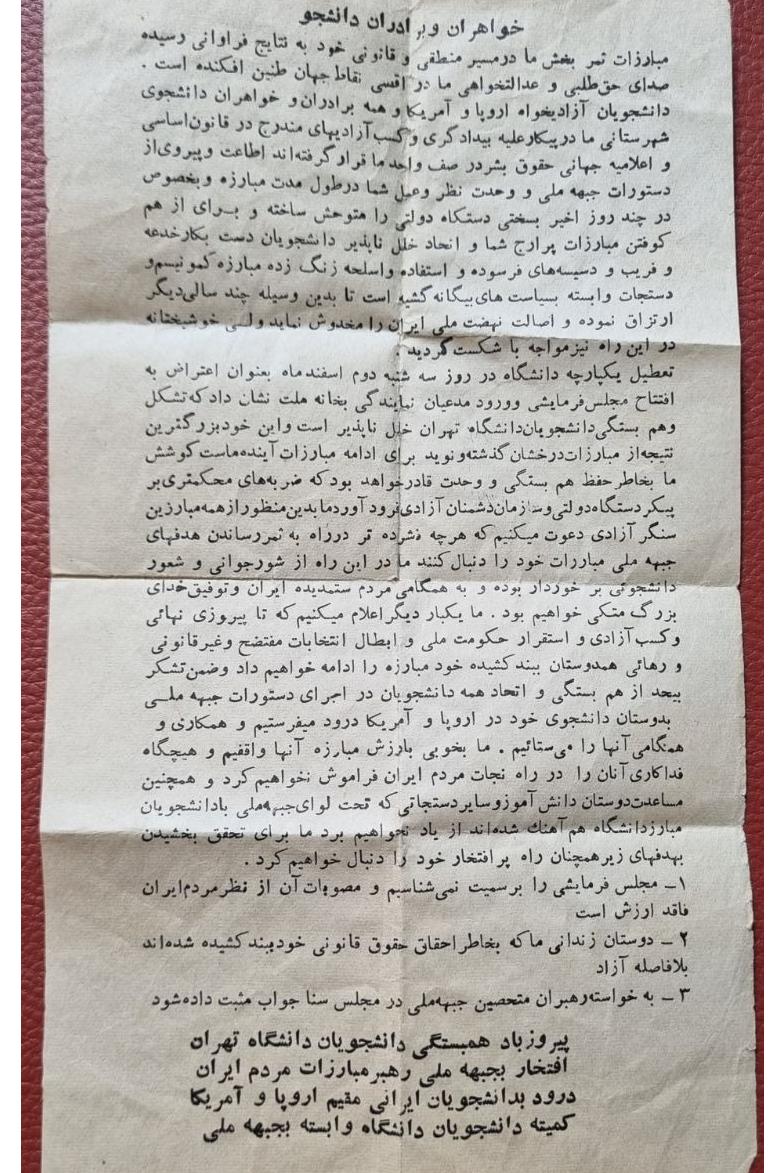 خواهران وبرادران دانشجو
مبارزات ثمر بخش ما درمسیر منطقی و قانونی خود به نتایج فراوانی رسیده
صدای حق‌طلبی و عدالتخواهی ما در اقسی نقاط جهان طنین افکنده است .
دانشجویان آزادیخواه اروپا و آمریکا و همه برادران و خواهران دانشجوی
شهرستانی ما درپیکارعلیه بیدادگری و کسب‌آزادیهای مندرج در قانون‌اساسی
و اعلامیه جهانی حقوق بشردر صف واحد ما قرارگرفته‌اند اطاعت وپیروی‌از
دستورات جبهه ملی و وحدت نظر وعمل شما درطول مدت مبارزه وبخصوص
در چند روز اخیر بسختی دستگاه دولتی را متوحش ساخته و برای از هم
کوفتن مبارزات پرارج شما و اتحاد خلل ناپذیر دانشجویان دست بکارخدعه
و فریب و دسیسه‌های فرسوده و استفاده واسلحه زنگ زده مبارزه کمونیسم‌و
دستجات وابسته بسیاست های‌بیگانه گشیه است تا بدین وسیله چند سالی‌دیگر
ارتزاق نموده و اصالت نهضت ملی ایران را مخدوش نماید ولی خوشبختانه
در این راه نیزمواجه با شکست گردید .
تعطیل یکپارچه دانشگاه در روز سه شنبه دوم اسفندماه بعنوان اعتراض به
افتتاح مجلس‌فرمایشی وورود مدعیان نمایندگی بخانه ملت نشان داد که‌تشکل
وهم بستگی‌دانشجویان‌دانشگاه تهران خلل ناپذیر است واین خودبزرگترین
نتیجه‌از مبارزات‌درخشان‌گذشته‌و‌نوید برای ادامه مبارزات‌آینده‌ماست‌کوشش
ما بخاطرحفظ هم بستگی و وحدت قادرخواهد بودکه ضربه‌های محکمتری‌بر
پیکردستگاه‌دولتی‌وسازمان‌دشمنان آزادی‌فرود آوردمابدین‌منظوراز‌همه‌مبارزین
سنگر آزادی دعوت میکنیم‌که هرچه فشرده تر درراه به ثمررساندن هدفهای
جبهه ملی مبارزات خود را دنبال‌کنند ما در این راه از شورجوانی و شعور
دانشجوئی بر خوردار بوده و به همگامی مردم ستمدیده ایران وتوفیق‌خدای
بزرگ متکی خواهیم بود . ما یکبار دیگراعلام میکنیم‌که تا پیروزی نهائی
وکسب‌آزادی و استقرار حکومت ملی و ابطال انتخابات مفتضح وغیرقانونی
و رهائی همدوستان ببندکشیده خود مبارزه را ادامه خواهیم داد وضمن‌تشکر
بیحد از هم بستگی و اتحاد همه دانشجویان در اجرای دستورات جبهه ملی
بدوستان دانشجوی خود در اروپا و آمریکا درود میفرستیم و همکاری و
همگامی‌آنها را می‌ستائیم . ما بخوبی بارزش مبارزه آنها واقفیم و هیچگاه
فداکاری‌آنان را در راه نجات مردم ایران فراموش نخواهیم‌کرد و همچنین
مساعدت‌دوستان دانش آموزوسایردستجاتی‌که تحت لوای‌جبهه‌ملی بادانشجویان
مبارزدانشگاه هم‌آهنك شده‌اند از یاد نخواهیم برد ما برای تحقق بخشیدن
بهدفهای زیرهمچنان راه پرافتخار خود را دنبال خواهیم‌کرد .
۱ـ مجلس فرمایشی را برسمیت نمی‌شناسیم و مصوبات‌آن از نظرمردم‌ایران
فاقد ارزش است
۲ ـ دوستان زندانی ماکه بخاطراحقاق حقوق قانونی خودببندکشیده شده‌اند
بلافاصله آزاد
۳ ـ به خواسته‌رهبران متحصین جبهه‌ملی در مجلس سنا جواب مثبت داده‌شود
پیروزباد همبستگی دانشجویان دانشگاه تهران
افتخار بجبهه ملی رهبرمبارزات مردم ایران
درود بدانشجویان ایرانی مقیم اروپا و آمریکا
کمیته دانشجویان دانشگاه وابسته بجبهه ملی